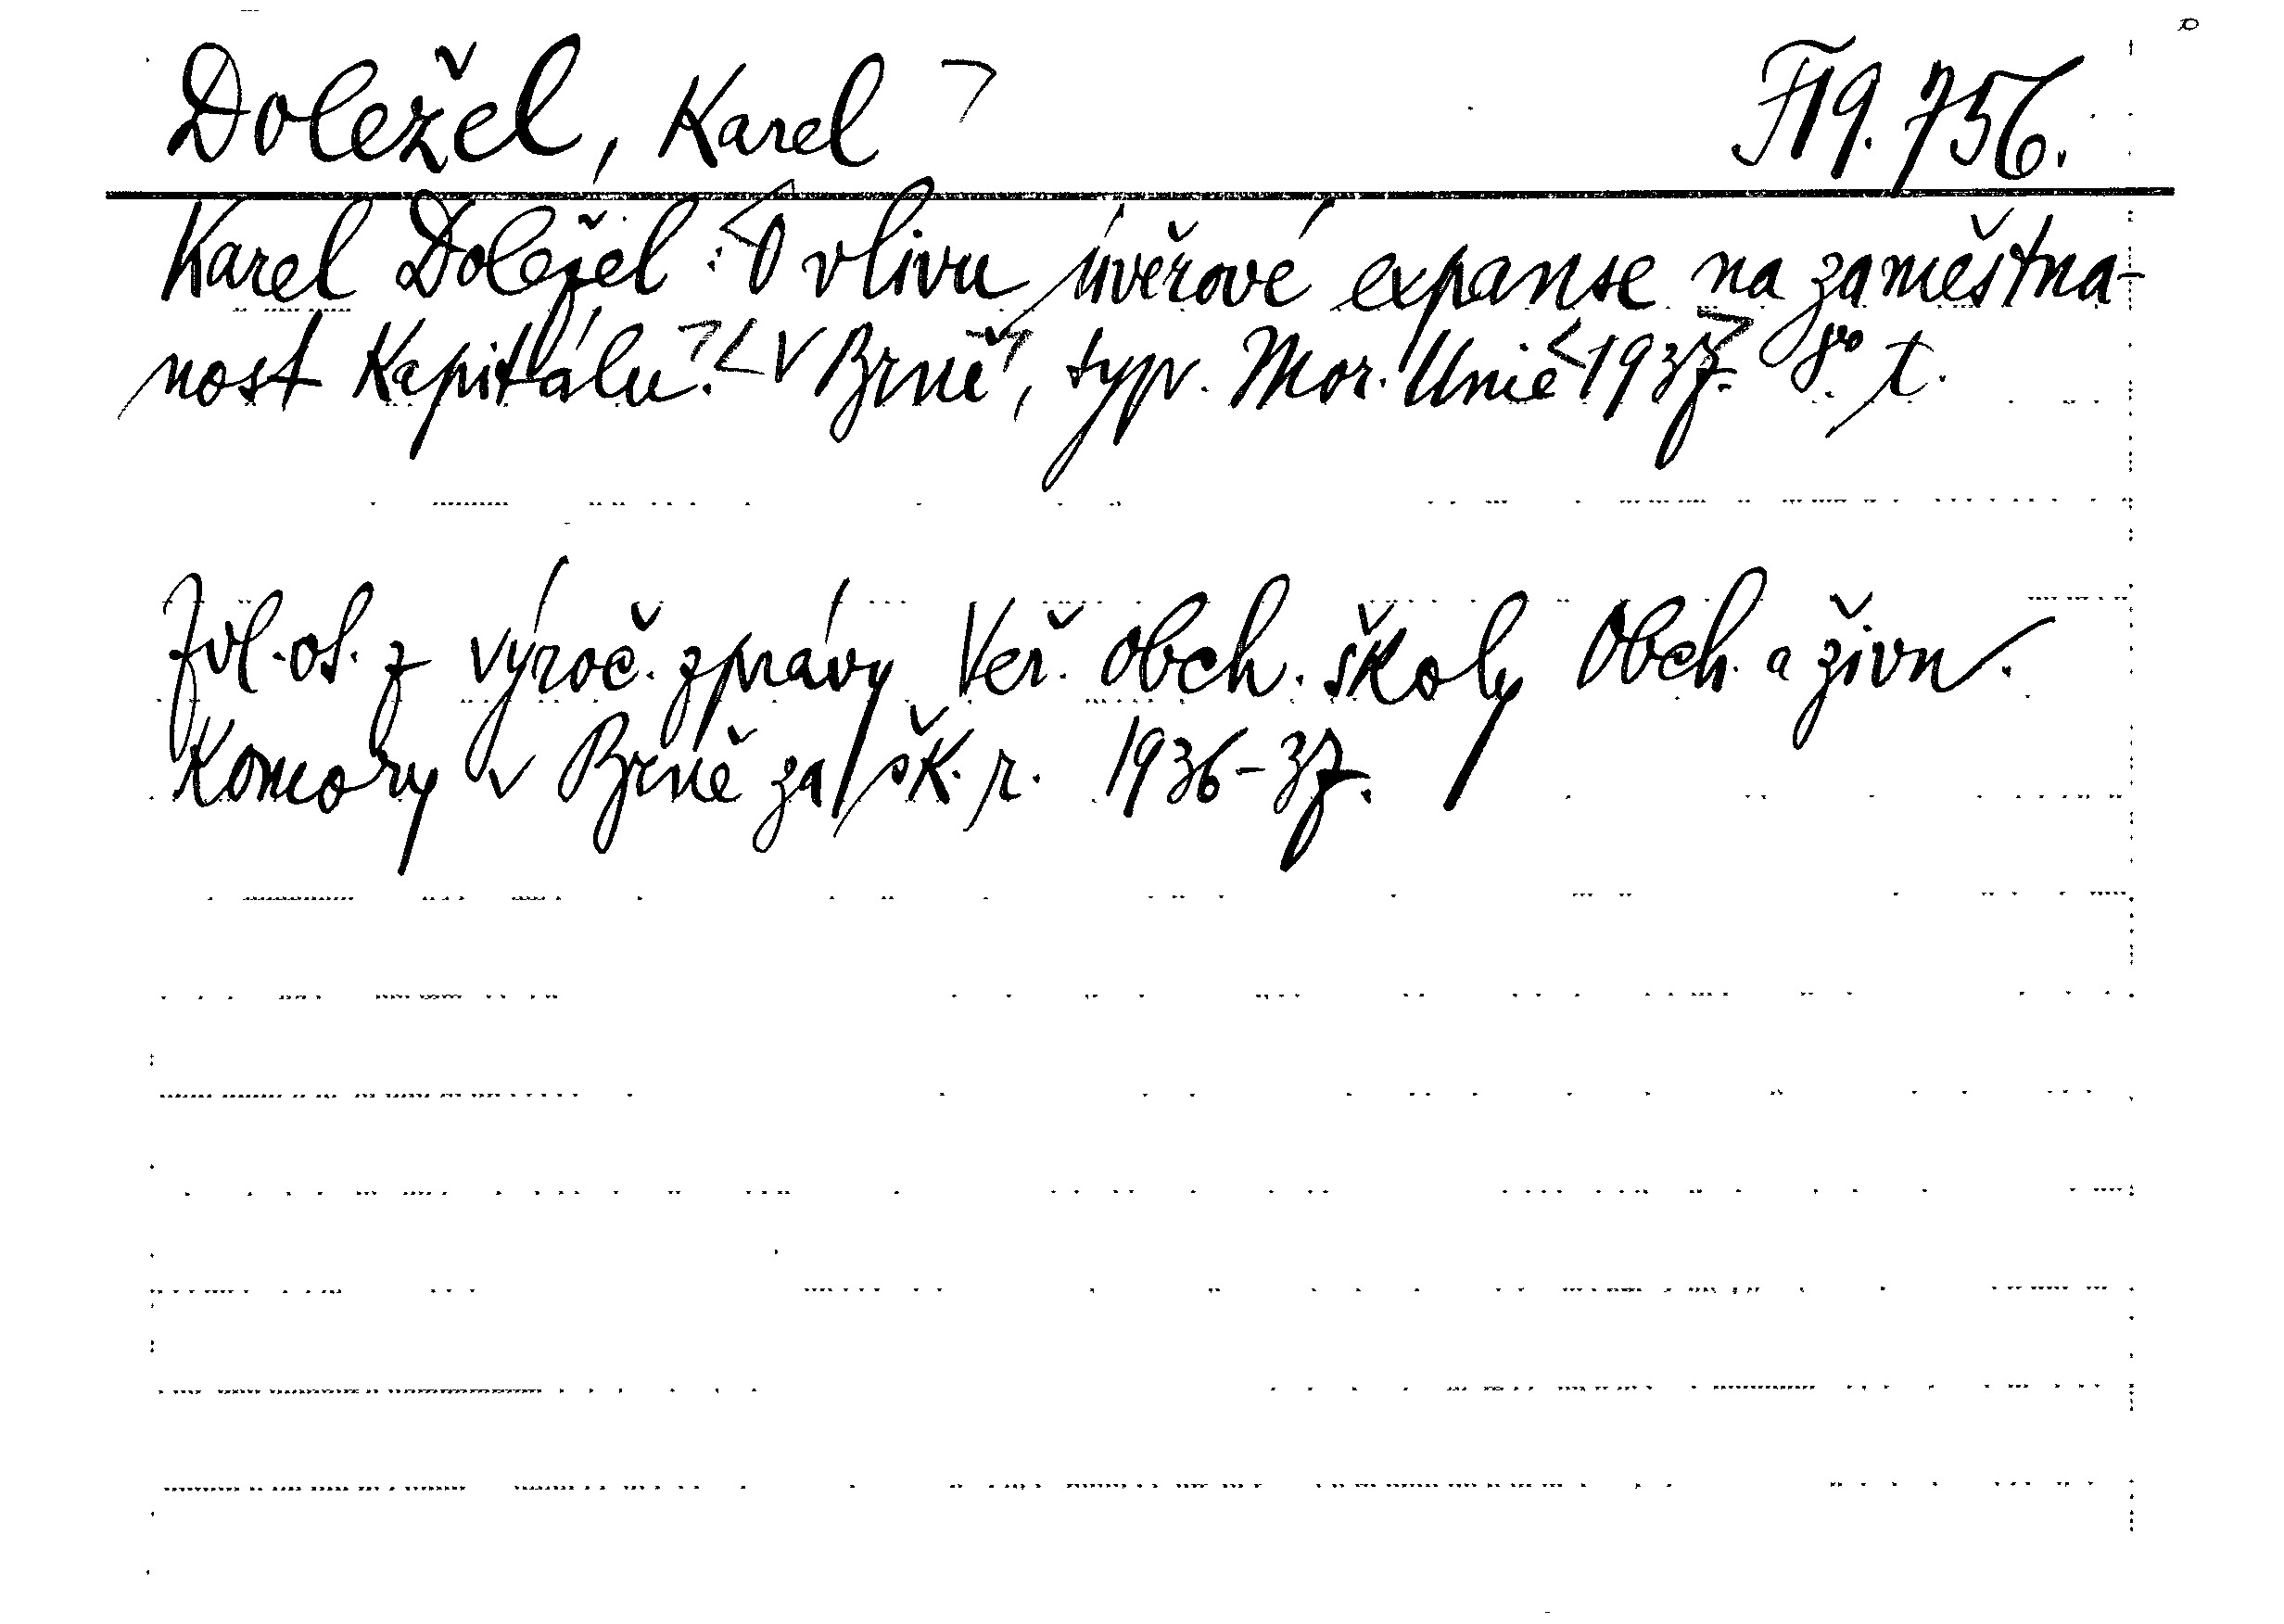 Doležel, Karel F19.756.
Karel Doležel: O vlivu úvěrové expanse na zaměstna-
nost kapitálu. V Brně, typ. Mor. Unie 1937. 8° t.
Zvl. ot. z výroč. zprávy Veř. obch. školy Obch. a živn.
Komory v Brně za šk. r. 1936-37.